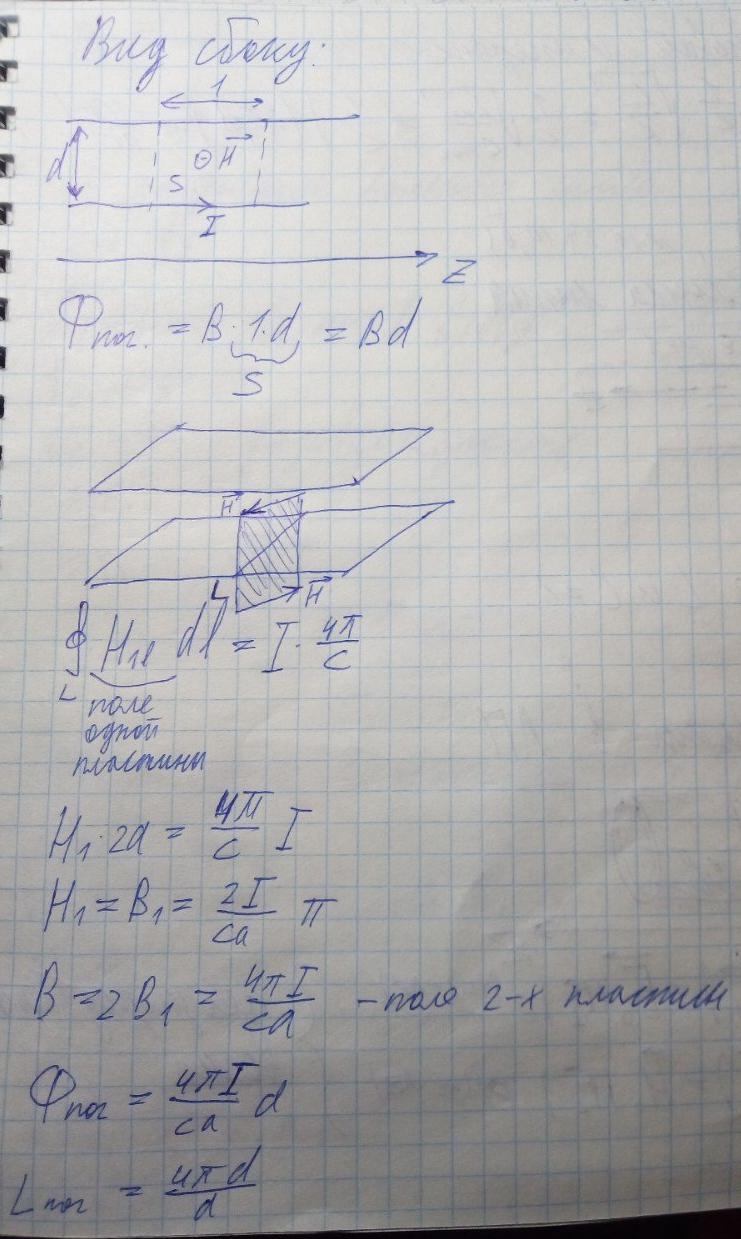 Вид сбоку:
1
d
⊙ H⃗
S
I
Z
Φпог. = B · 1 · d = Bd
S
H⃗
L
H⃗
∮ H₁ₑ dl = I · 4π/c
L
поле
одной
пластины
H₁ · 2a = 4π/c I
H₁ = B₁ = 2I/ca π
B = 2B₁ = 4πI/ca – поле 2-х пластин
Φпог = 4πI/ca d
Lпог = 4πd/d